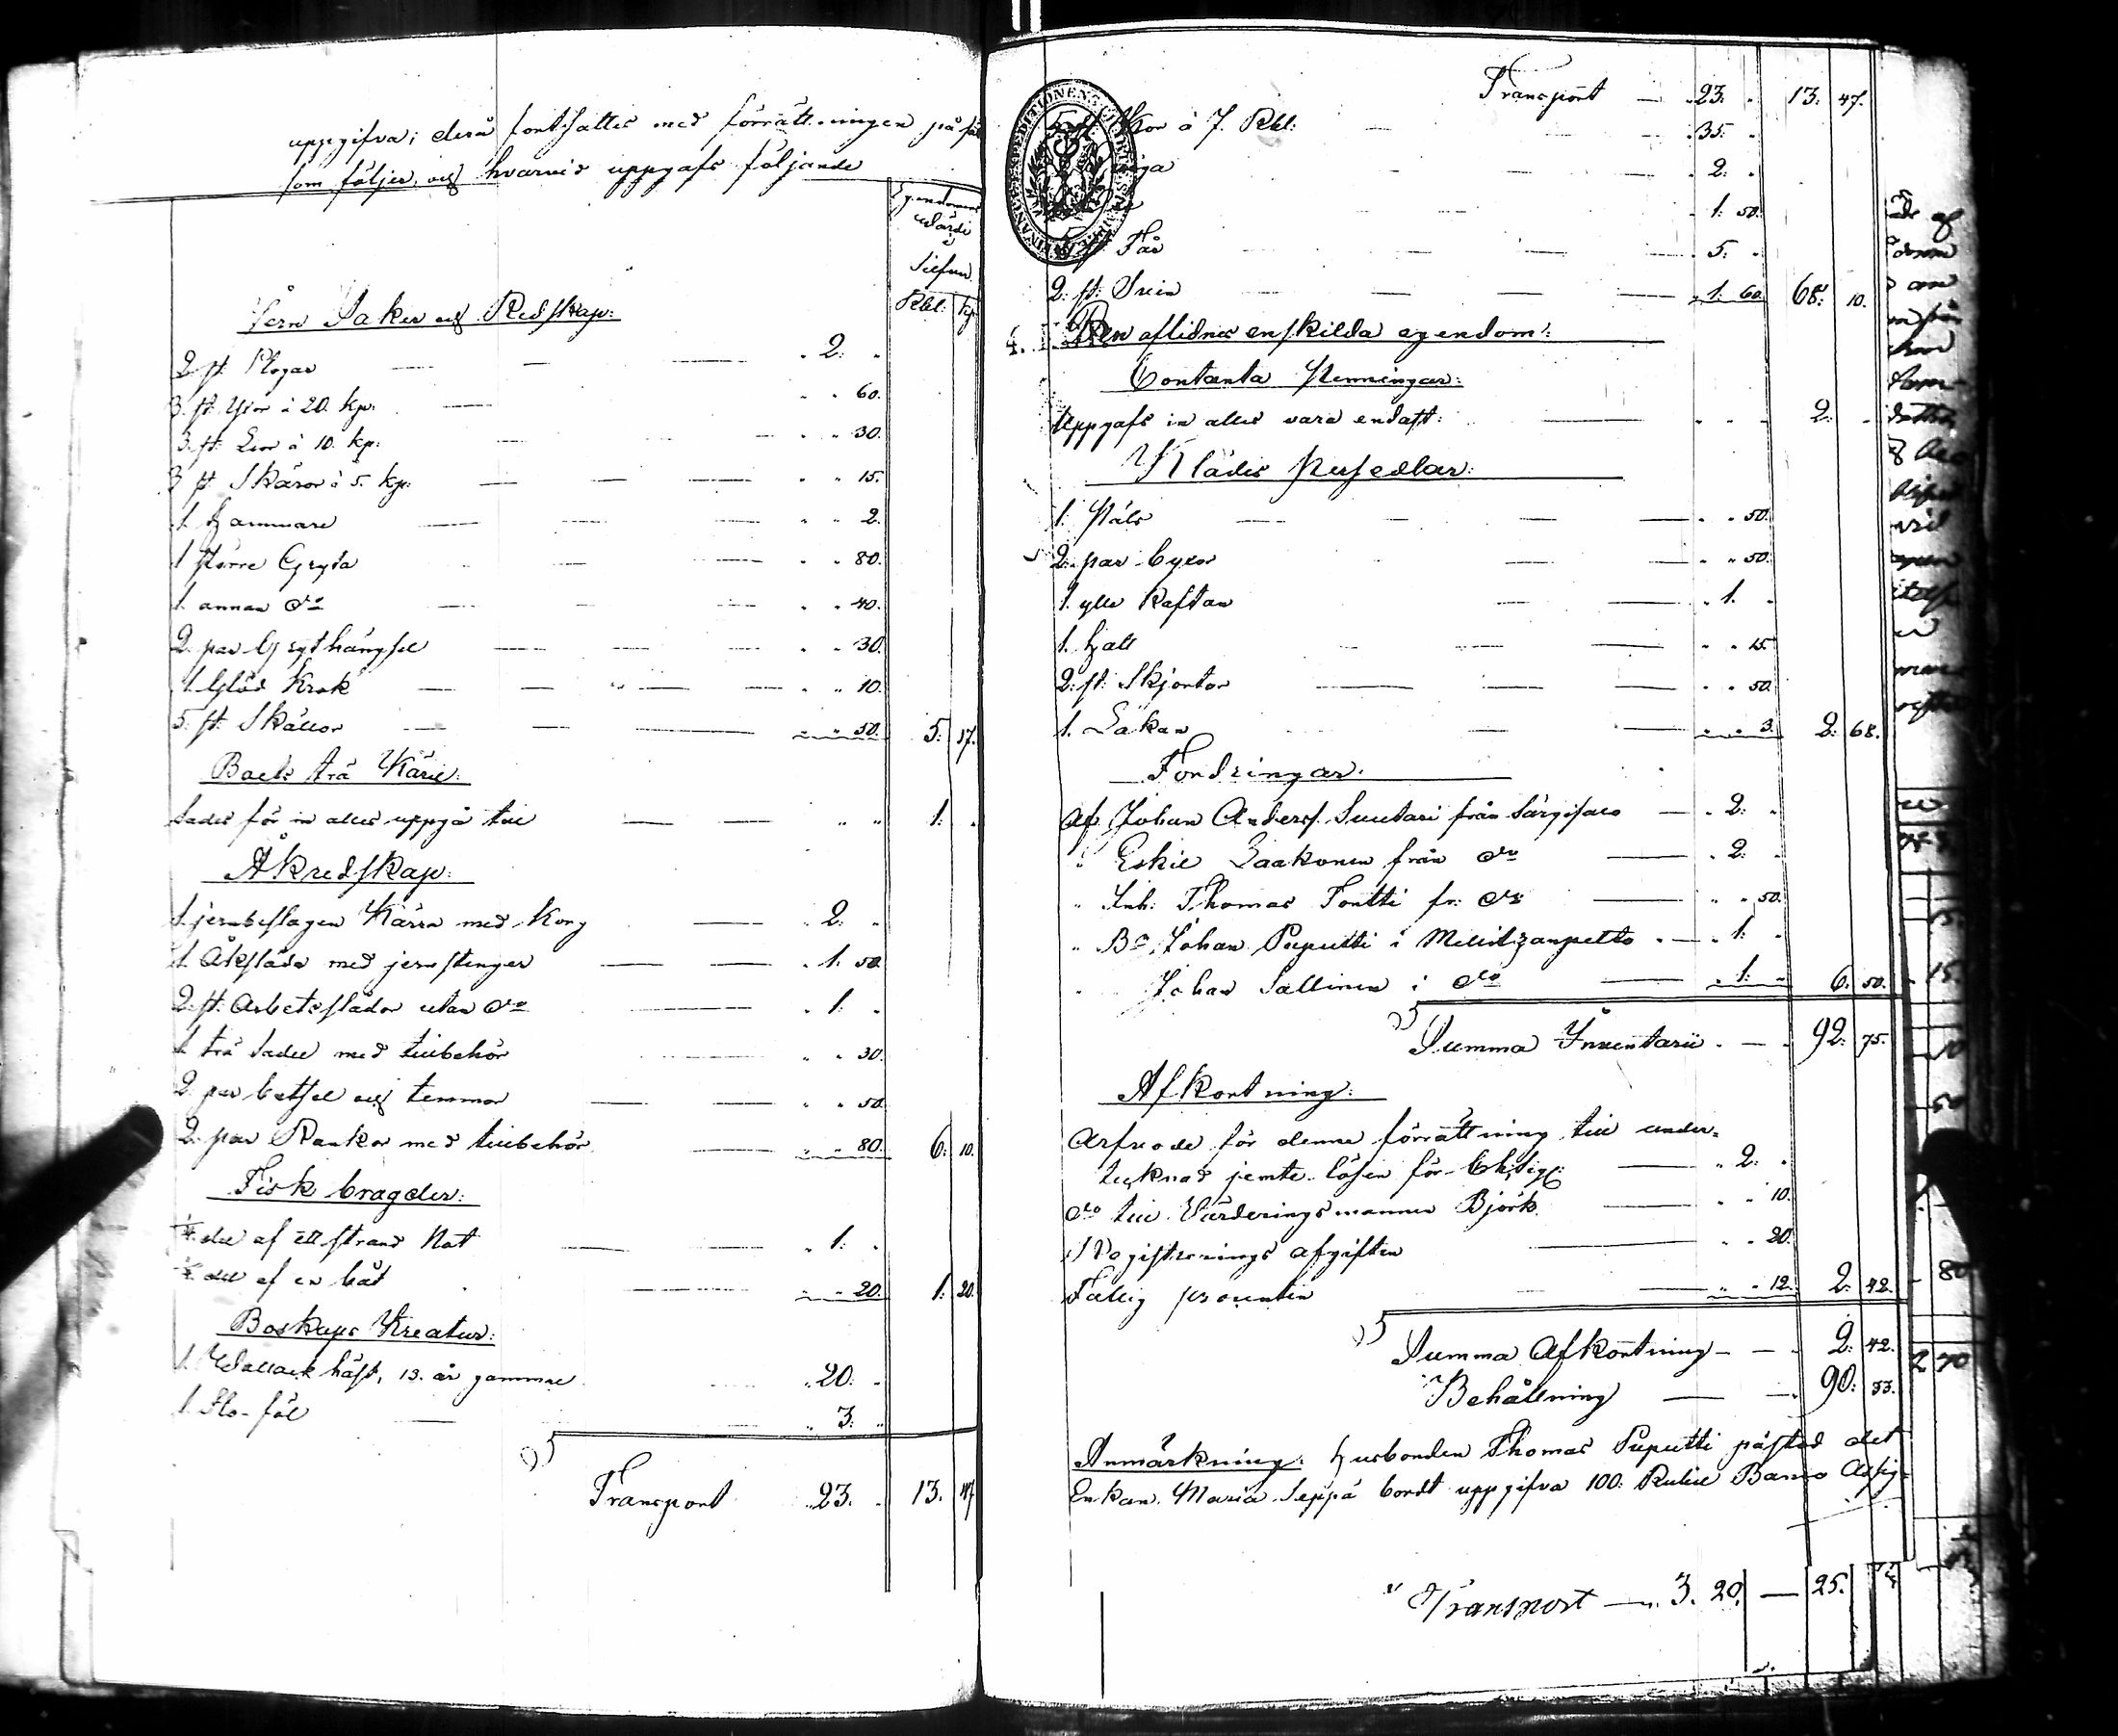 uppgifva; derå fortsattes med förrättningen på sätt
som följer, och hvarvid uppgafs följande
Egendomens
värde
i
Silfver
Rbl. Kp.
Jern Saker och Redskap:
2 st. Plogar — 2: "
3. st. Yxor à 20. kp. " " 60.
3. st. Liar à 10. kp: — " " 30.
3 st Skäror à 5. kp: — " " 15.
1. Hammare — " " 2.
1 större Gryta — " " 80.
1. annan do — " " 40.
2. par Grythängsel — " " 30.
1. Glöd Krok — " " 10.
5. st. Skällor — " " 50. 5: 17.
Bark trä Kärie:
sades för in alles uppgå till — " " 1: "
Åkredskap:
1. jernbeslagen Kärra med Korg — 2: "
1. Åksläda med jernstenger — 1: 50.
2. st. Arbetsslädor utan do — 1: "
1. trä Sadel med tillbehör " " 30.
2. par betsel och temmar — " " 50.
2. par Rankor med tillbehör — " " 80. 6: 10.
Fisk bragder:
del af ett strand Not — 1: "
del af en båt — " " 20. 1: 20.
Boskaps Kreatur:
1. Wallack häst, 13. år gammal — 20: "
1. Sto-föl — 3: "
Transport 23. " 13. 47
Transport — 23. " 13: 47.
5 st. Kor à 7. Rbl: — 35: "
— 2: "
— 1: 50.
st. Får — 5: "
2: st: Svin — 1: 60. 68: 10.
4. Den aflidnes enskilda egendom:
Contanta Penningar:
Uppgafs in alles vara endast: — 2: "
Klädes persedlar:
1. Päls — " " 50.
2. par Byxor — " " 50.
1. ylle Kaftan — " 1. "
1. Hatt — " " 15.
2: st: Skjortor — " " 50.
1. Lakan — " " 3. 2: 68.
Fordringar.
Af Johan Anders. Suutari från Särgisalo — 2: "
" Eskil Laakonen från do — 2: "
" Inh: Thomas Tontti fr: do — " " 50.
" Bo Johan Puputti i Militzanpelto — 1: "
" Johan Sallinen i do — 1: " 6. 50.
Summa Inventarii — 92: 75.
Afkortning:
Arfvode för denna förrättning till under-
tecknad jemte lösen för — 2: "
do till Värderingsmannen Björk — " " 10.
Registrerings afgiften — " " 20.
Fattig procenten — " " 12. 2: 42.
Summa Afkortning — 2: 42.
Behållning — 90: 33.
Anmärkning: Husbonden Thomas Puputti påstod det
Enkan Maria Seppä bordt uppgifva 100: Rubel Banco Assig-
Transport — 3. 20. — 25.